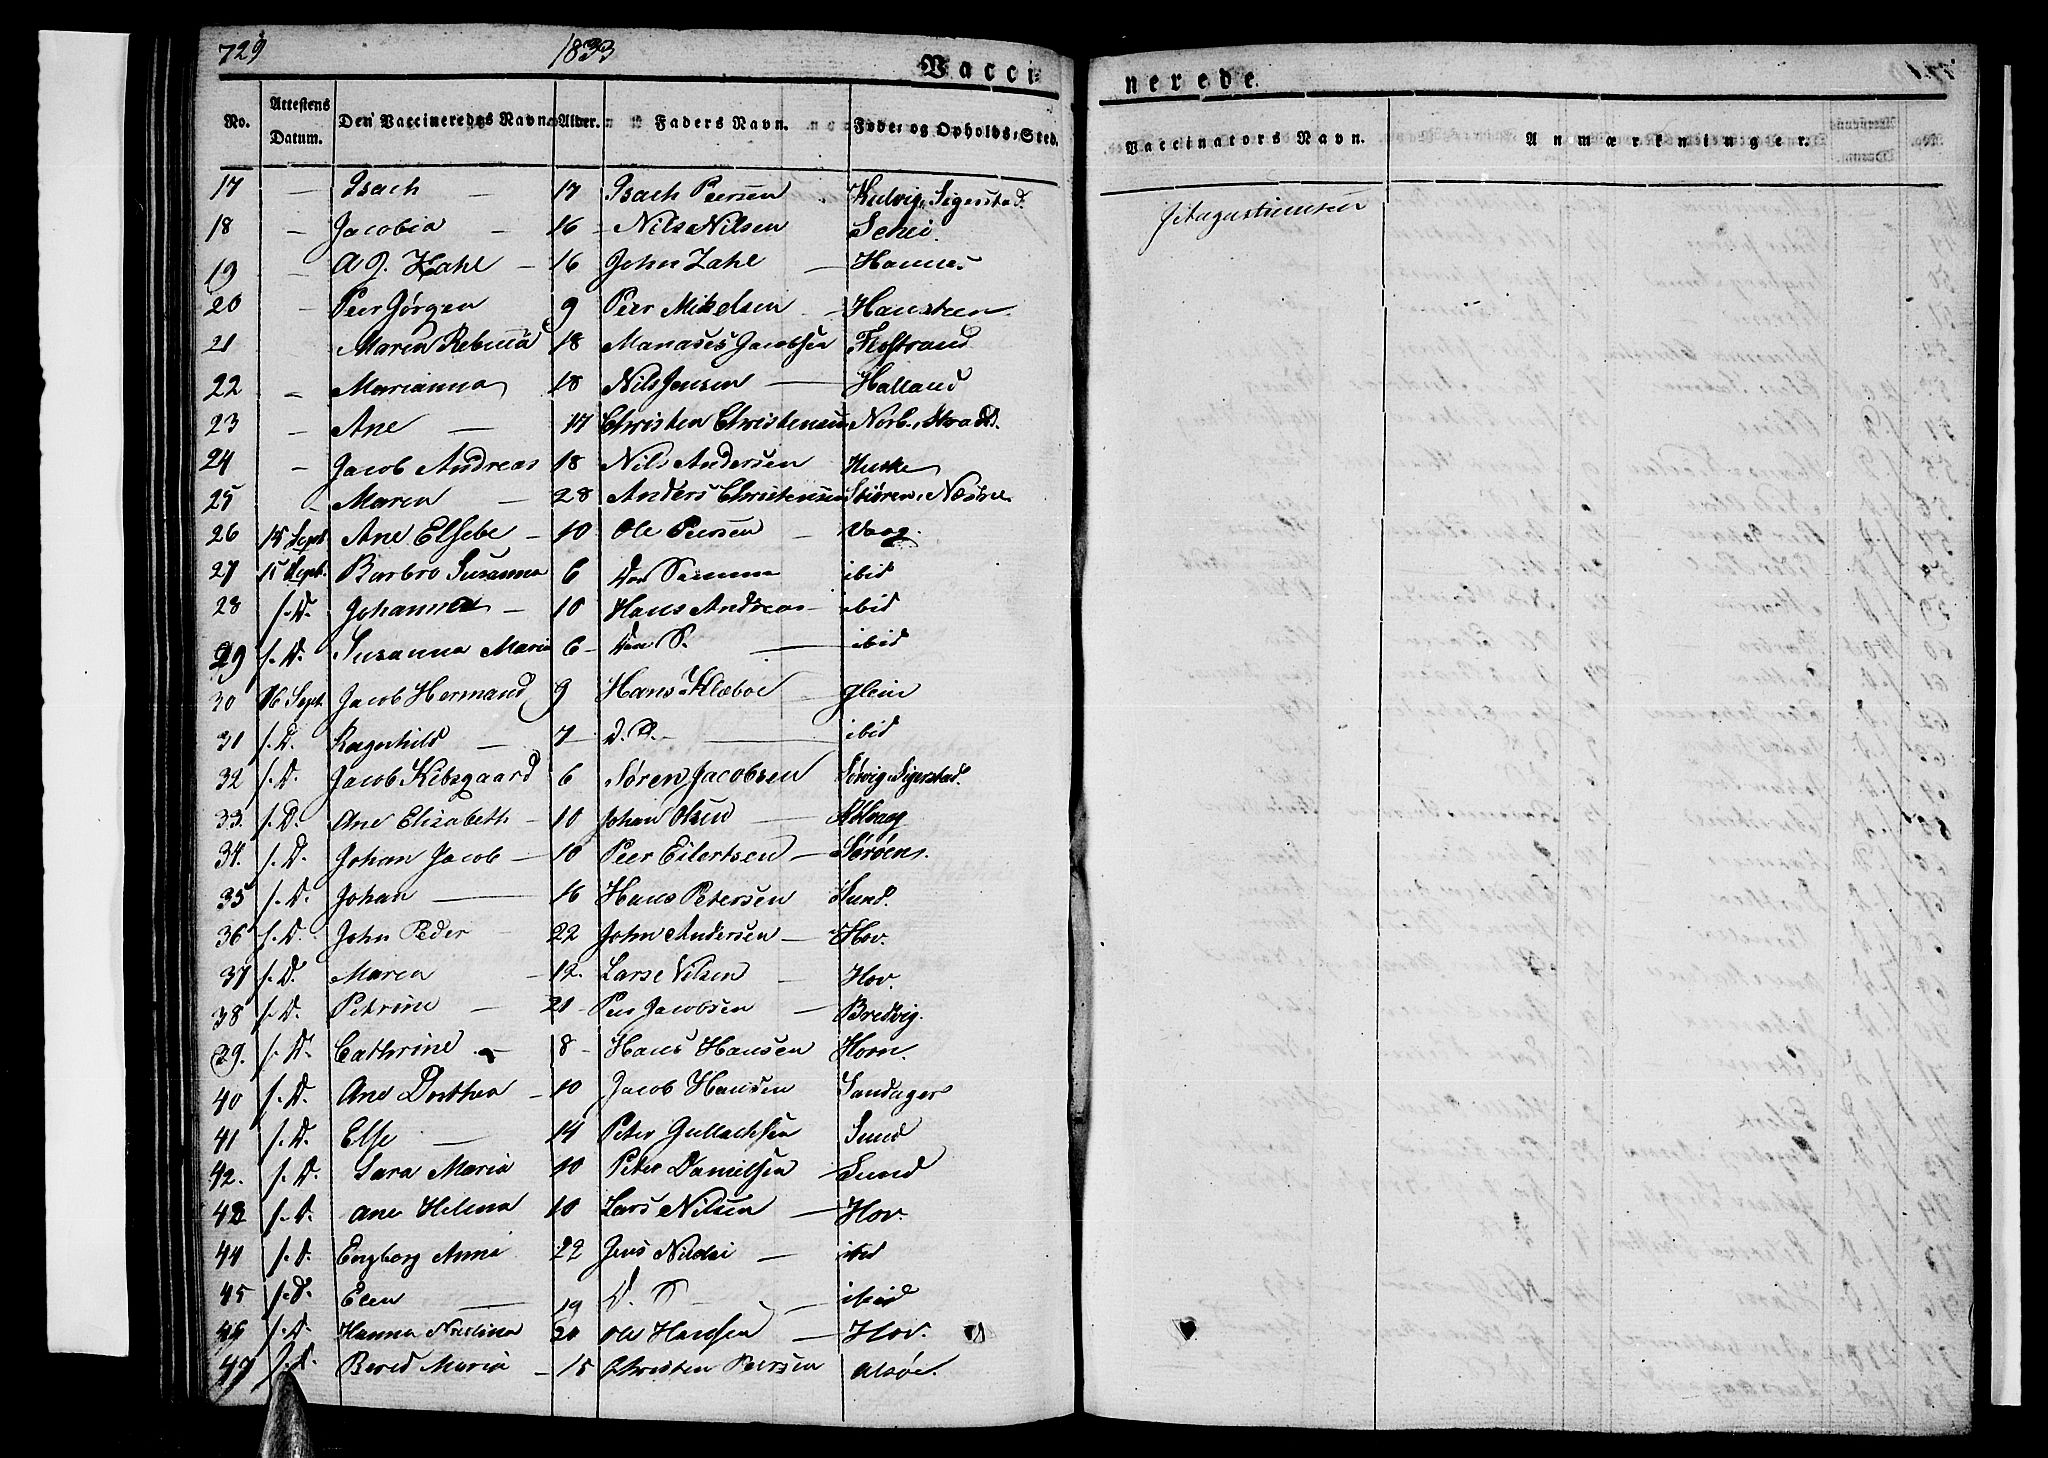 729 1833
Vacci
nerede.
No. Attestens Datum. Den Vaccineredes Navn. Alder. Faders Navn. Føde- og Opholds-Sted.
Vaccinators Navn. Anmærkninger.
17 — Isach — 17 Isach Peersen Sigerstad.
18 — Jacobia — 16 - Nils Nilsen Schei.
19 — A J. Zahl — 16 John Zahl — Hannes
20 — Peer Jørgen 9 Peer Mikelsen - Hansteen.
21 Maren Rebecca 18 Manases Jacobsen Flostrand
22 - Marianna 18 Nils Jensen — Halland
23 - Ane — 17 Christen Christensen
24 - Jacob Andreas 18 Nils Andersen Huske
25 - Maren — 28 Anders Christensen
26 15 Sept Ane Elsebe - 10 Ole Peersen — Vaag.
27 15 Sept. Barbro Susanna 6 Den Samme ibid
28 s. D. Johanna - 10 Hans Andreas ibid
29 s. D. Susanna Maria 6 - Den S. — ibid
30 16 Sept. Jacob Hermand 9 Hans Klæboe glein
31 s. D. Ragnhild — 7 — D. S. — ibid
32 s. D. Jacob Kibsgaard 6 Søren Jacobsen Sigerstad.
33. s. D. Ane Elizabeth - 10 Johan Olsen —
34. s. D. Johan Jacob — 10 Peer Eilertsen — Sørøen.
35 s. D. Johan — 16 Hans Petersen Sund.
36 s. D. John Peder 22 John Andersen — Hov.
37 s. D. Maren - 12. Lars Nilsen — Hov.
38 s. D. Petrine — 21 - Peer Jacobsen — Bredvig.
39. s. D. Cathrine - 8 - Hans Hansen Horn.
40 s. D. Ane Dorthea - 10 Jacob Hansen Sandager
41 s. D. Else — 14 Peter Gullachsen Sund
42. s. D. Sara Maria 10 Peter Danielsen — Sund
43 s. D. Ane Helena 10 Lars Nilsen — Hov.
44 s. D. Engborg Anna 22 Jens — ibid
45 s. D. Elen — 19 D. S — ibid
46 s. D. Hanna 20 Ole Hansen — Hov.
47 s. D. Bered Maria - 15 Christen Peersen Alsøe.